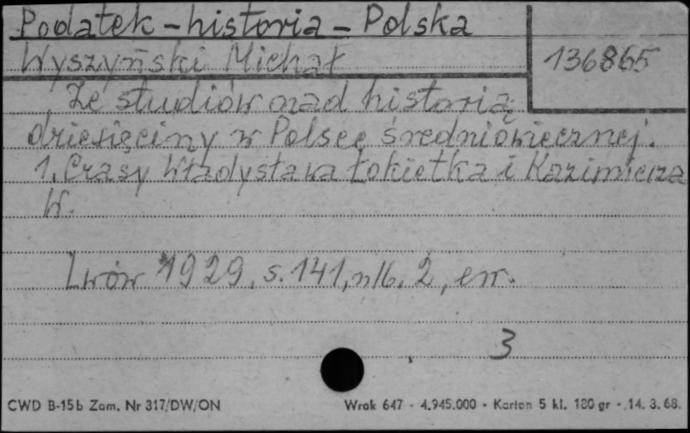 Podatek - historia - Polska
Wyszyński Michał
136865
Ze studiów nad historią
dziesięciny w Polsce średniowiecznej.
1. Czasy Władysława Łokietka i Kazimierza
W.
Lwów 1929, s. 141, nlb. 2, err.
3
CWD B-15b Zam. Nr 317/DW/ON
Wrak 647 - 4.945.000 - Karton 5 kl. 180 gr - 14. 3. 68.